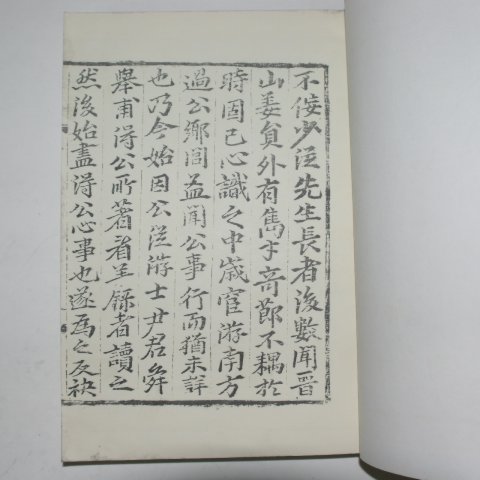 不佞少從先生長者後數聞晋
山姜貟外有雋才奇節不耦於
時固已心識之中歲宦游南方
過公鄉閭益聞公事行而猶未詳
也乃今始因公從游士尹君舜
擧甫得公所著看羊錄者讀之
然後始盡得公心事也遂爲之反袂